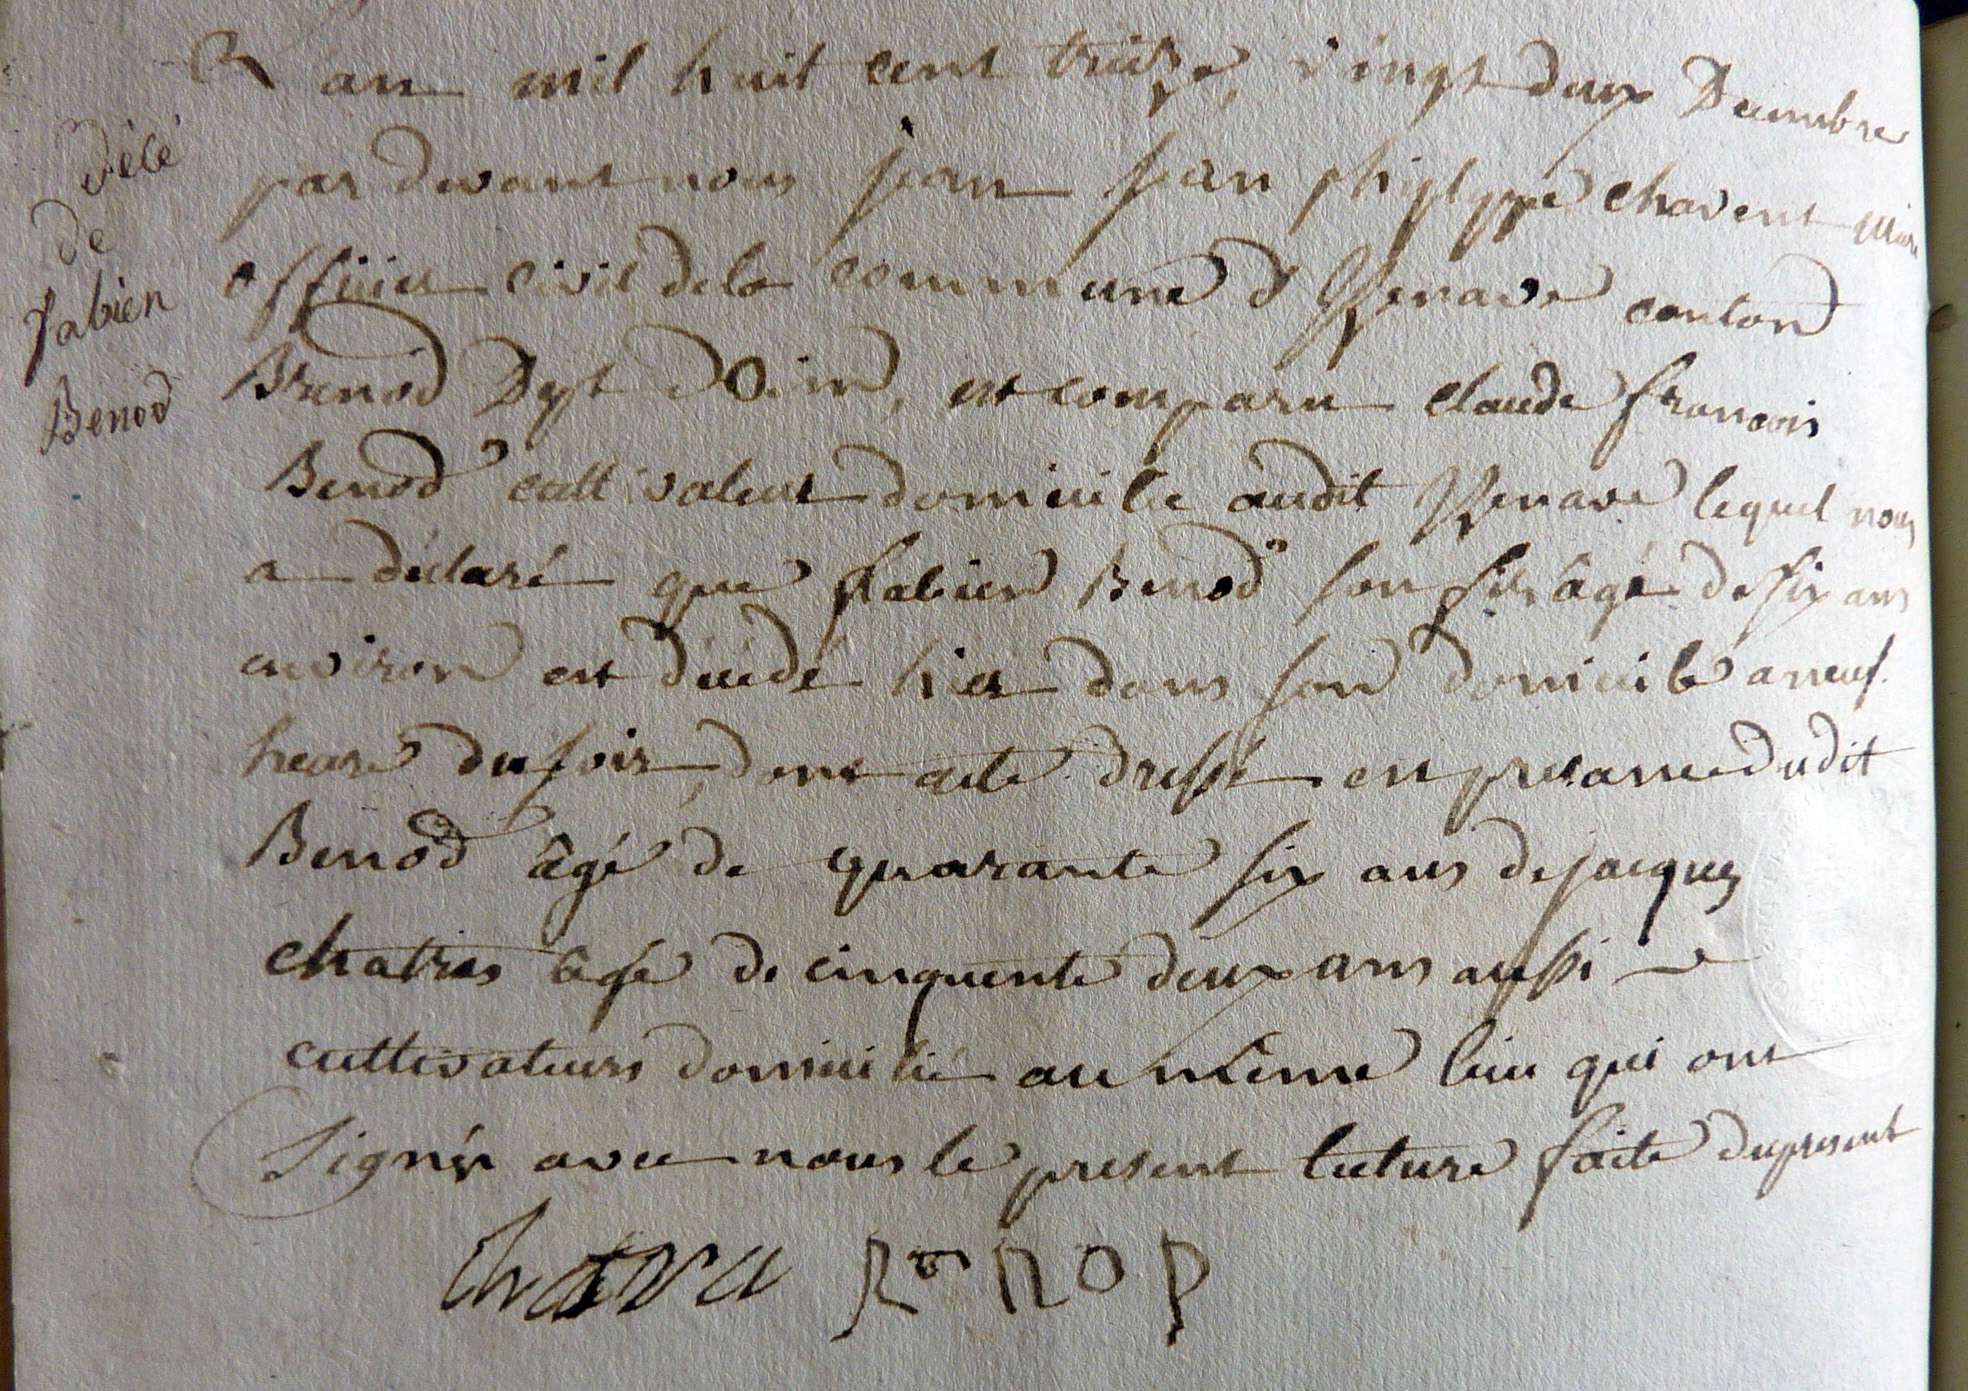 L'an mil huit cent treize, vingt deux Decembre
décé
de
fabien
Benod
par devant nous jean jean phylyppe chavent maire
officier civil de la commune d yzenave canton
Brenod Dept d Ain, est comparu claude francois
Benod cultivateur domicilié audit yzenave lequel nous
a déclaré que fabien Benod son fils âgé de six ans
environ est décédé hier dans son domicile a neuf
heure du soir, dont acte dressé en presance dudit
Benod âgé de quarante six ans de jacques
chatres âgé de cinquente deux ans aussi
cultivateurs domicilié au même lieu qui ont
signés avec nous le present lecture faite du present